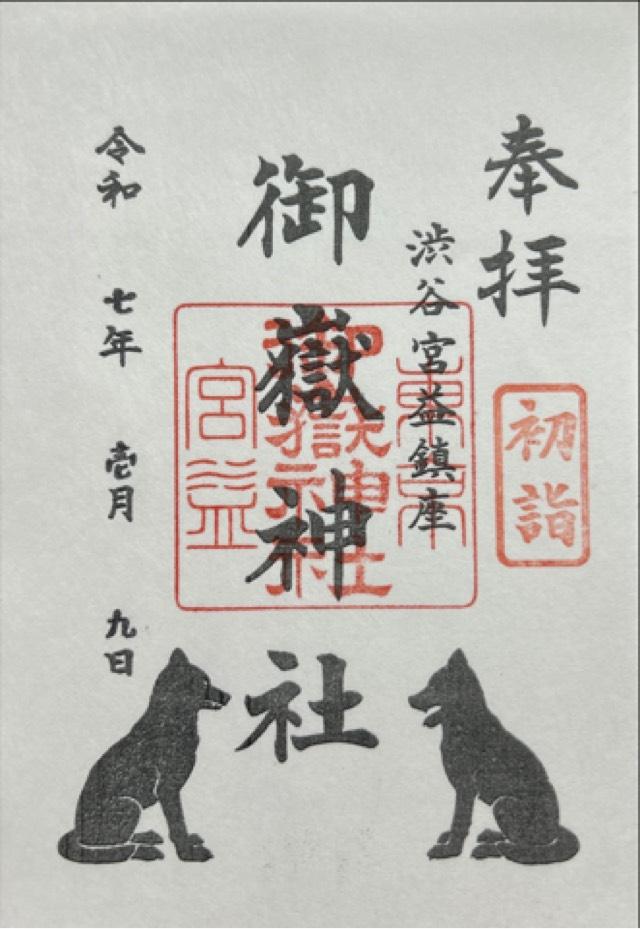 奉拝
初詣
渋谷宮益鎮座
御嶽神社
東京
御嶽神社
宮益
令和 七年 壱月 九日